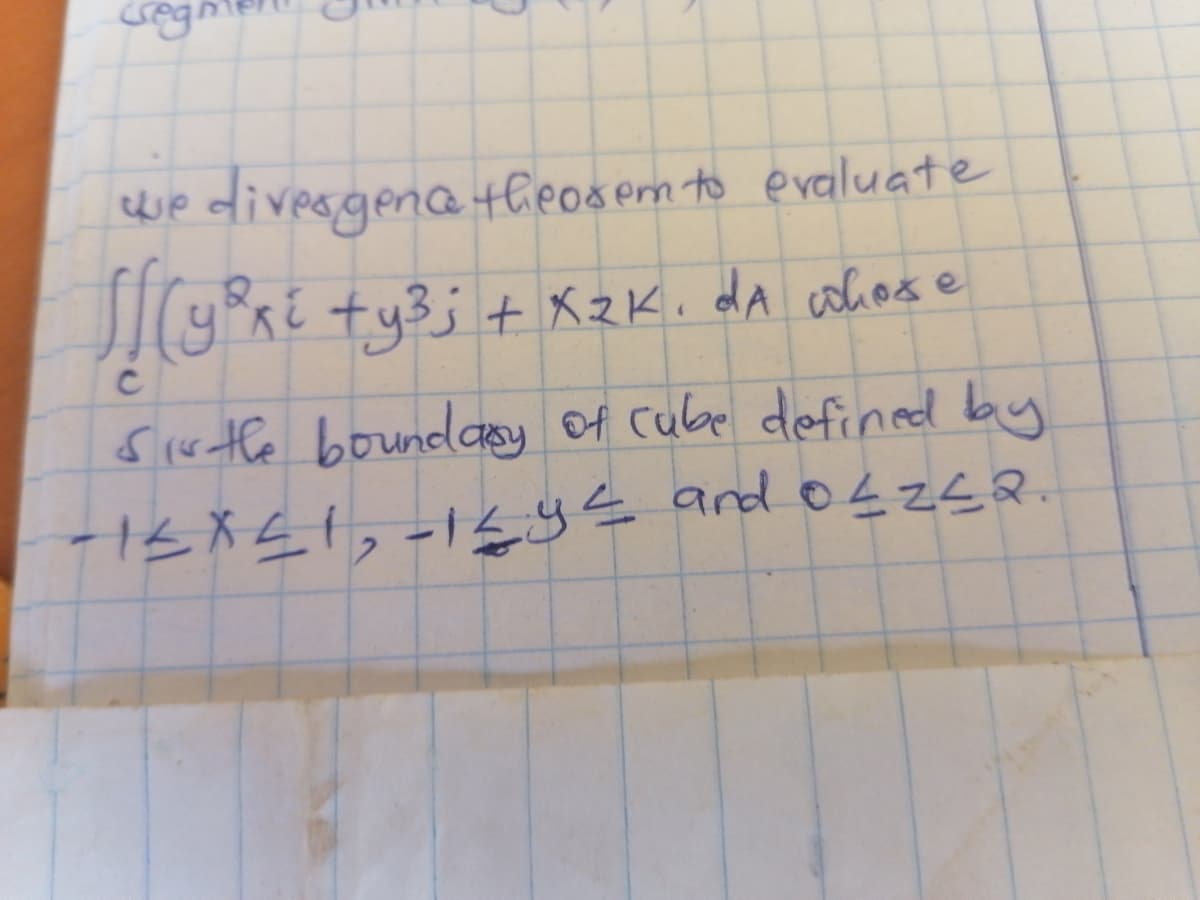 use divergence theorem to evaluate
∬(y²xi + y³j + xzk. dA whose
c
S is the boundary of cube defined by
-1≤x≤1, -1≤y≤ and 0≤z≤2.